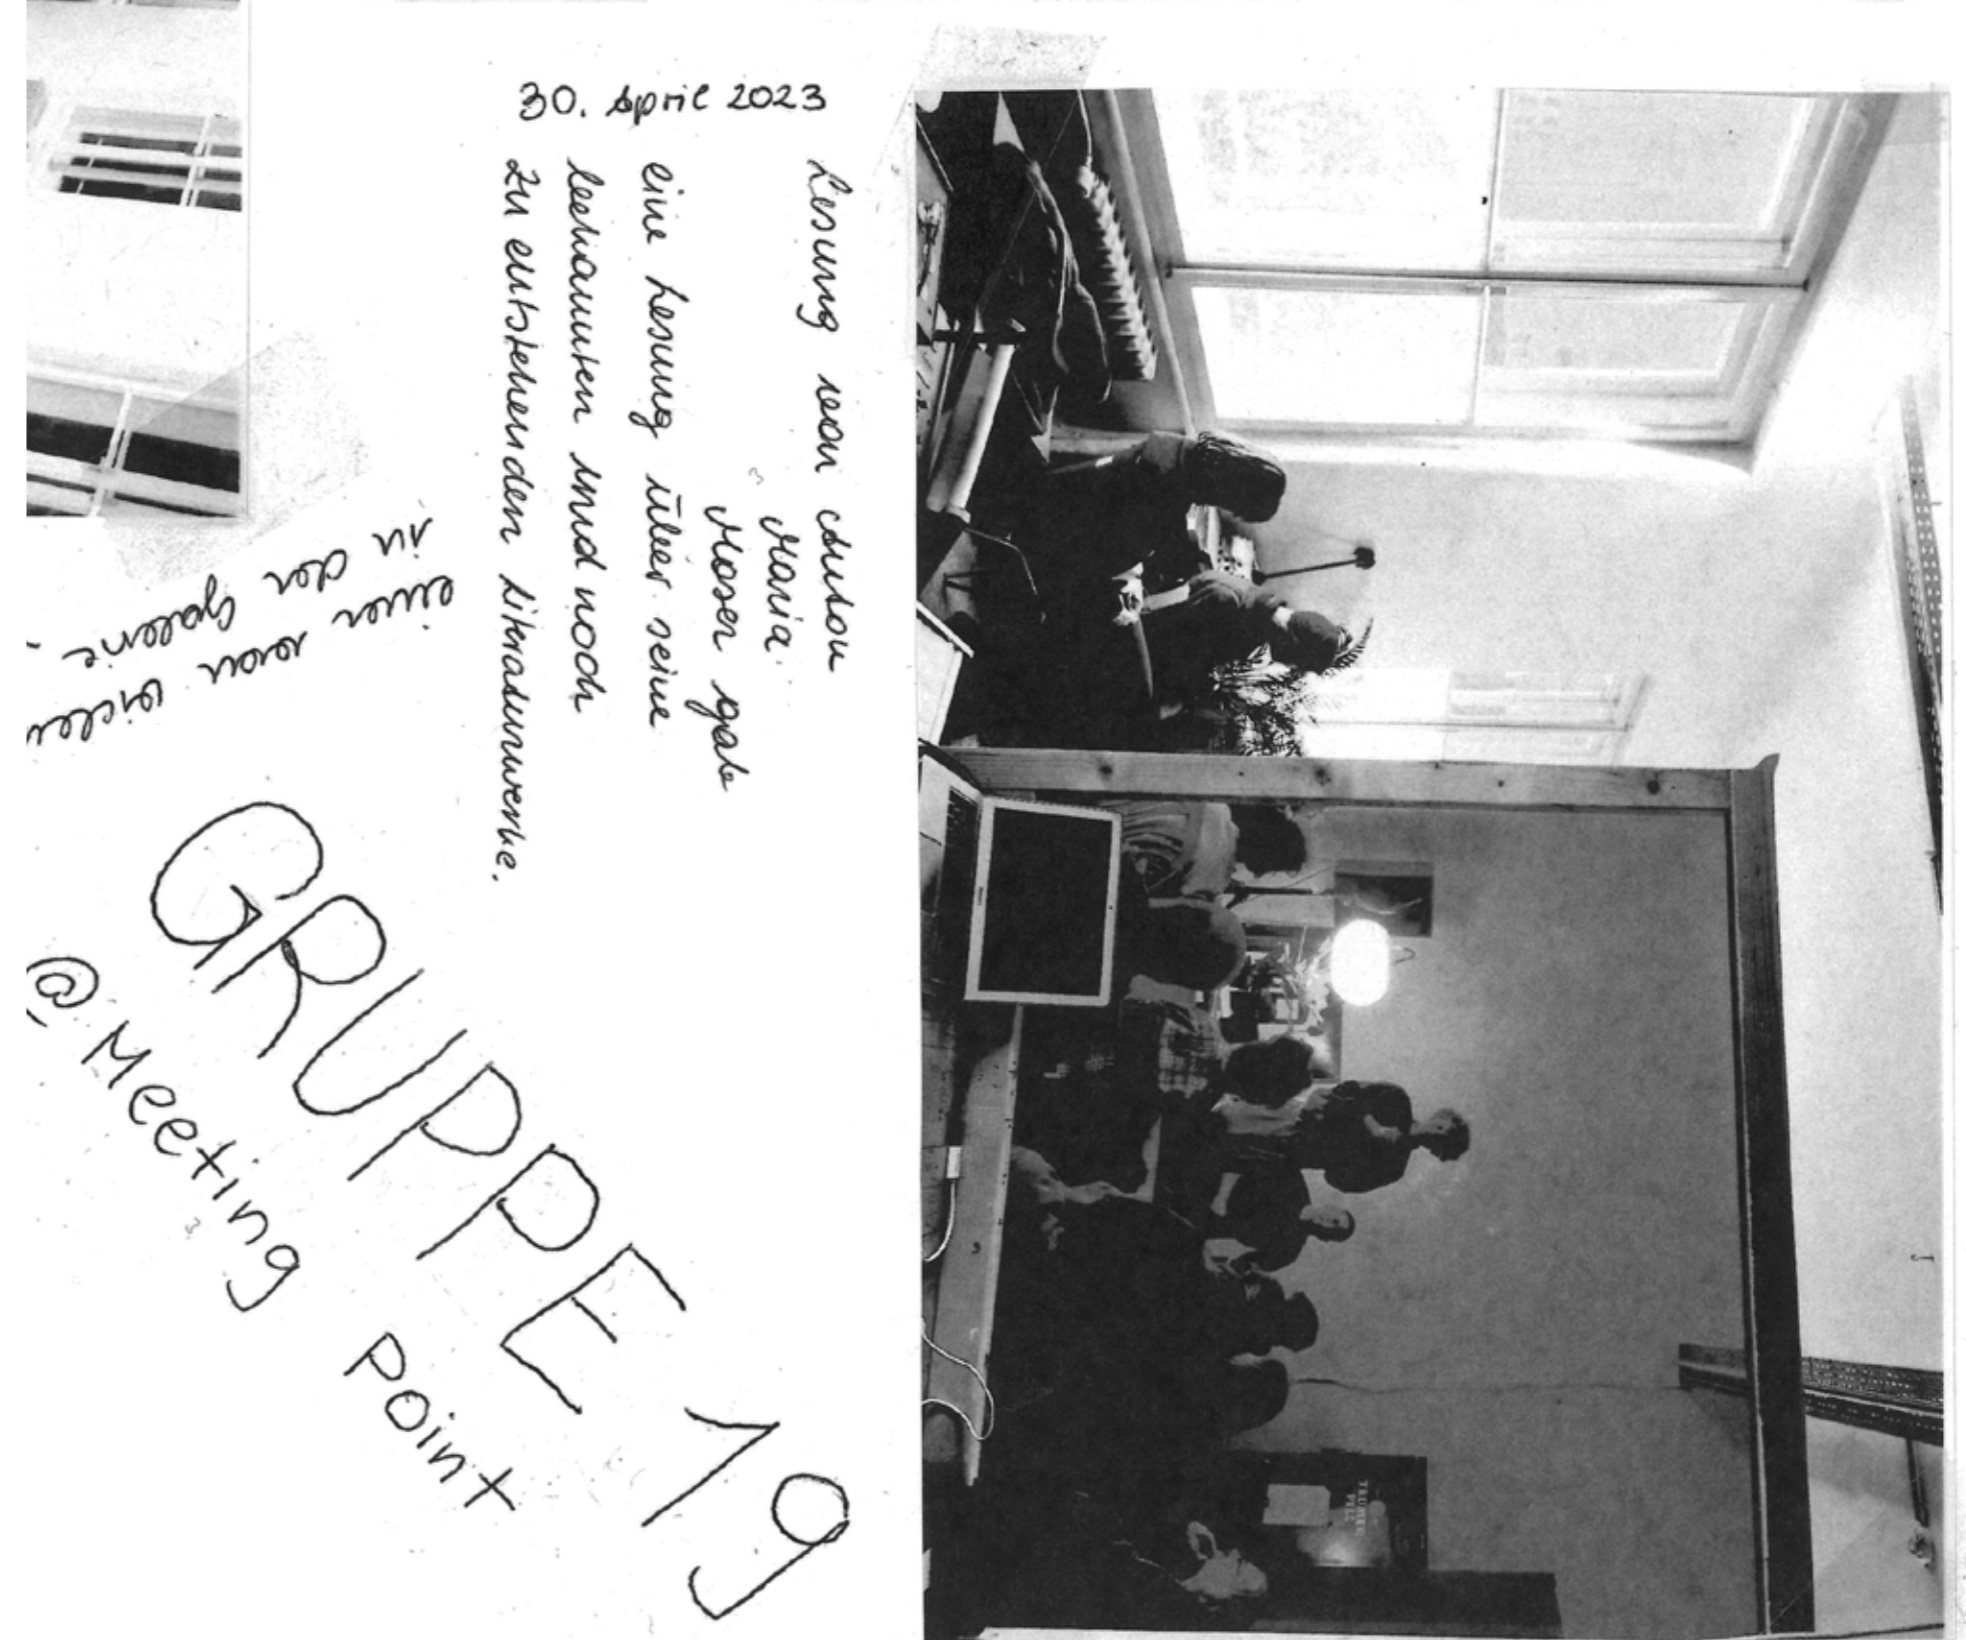 30. April 2023
Lesung von Autor
Maria
Moser gab
eine Lesung über seine
bekannten und noch
zu entstehenden Literaturwerke.
in der Galerie,
einer von vielen
GRUPPE 19
@ Meeting
Point